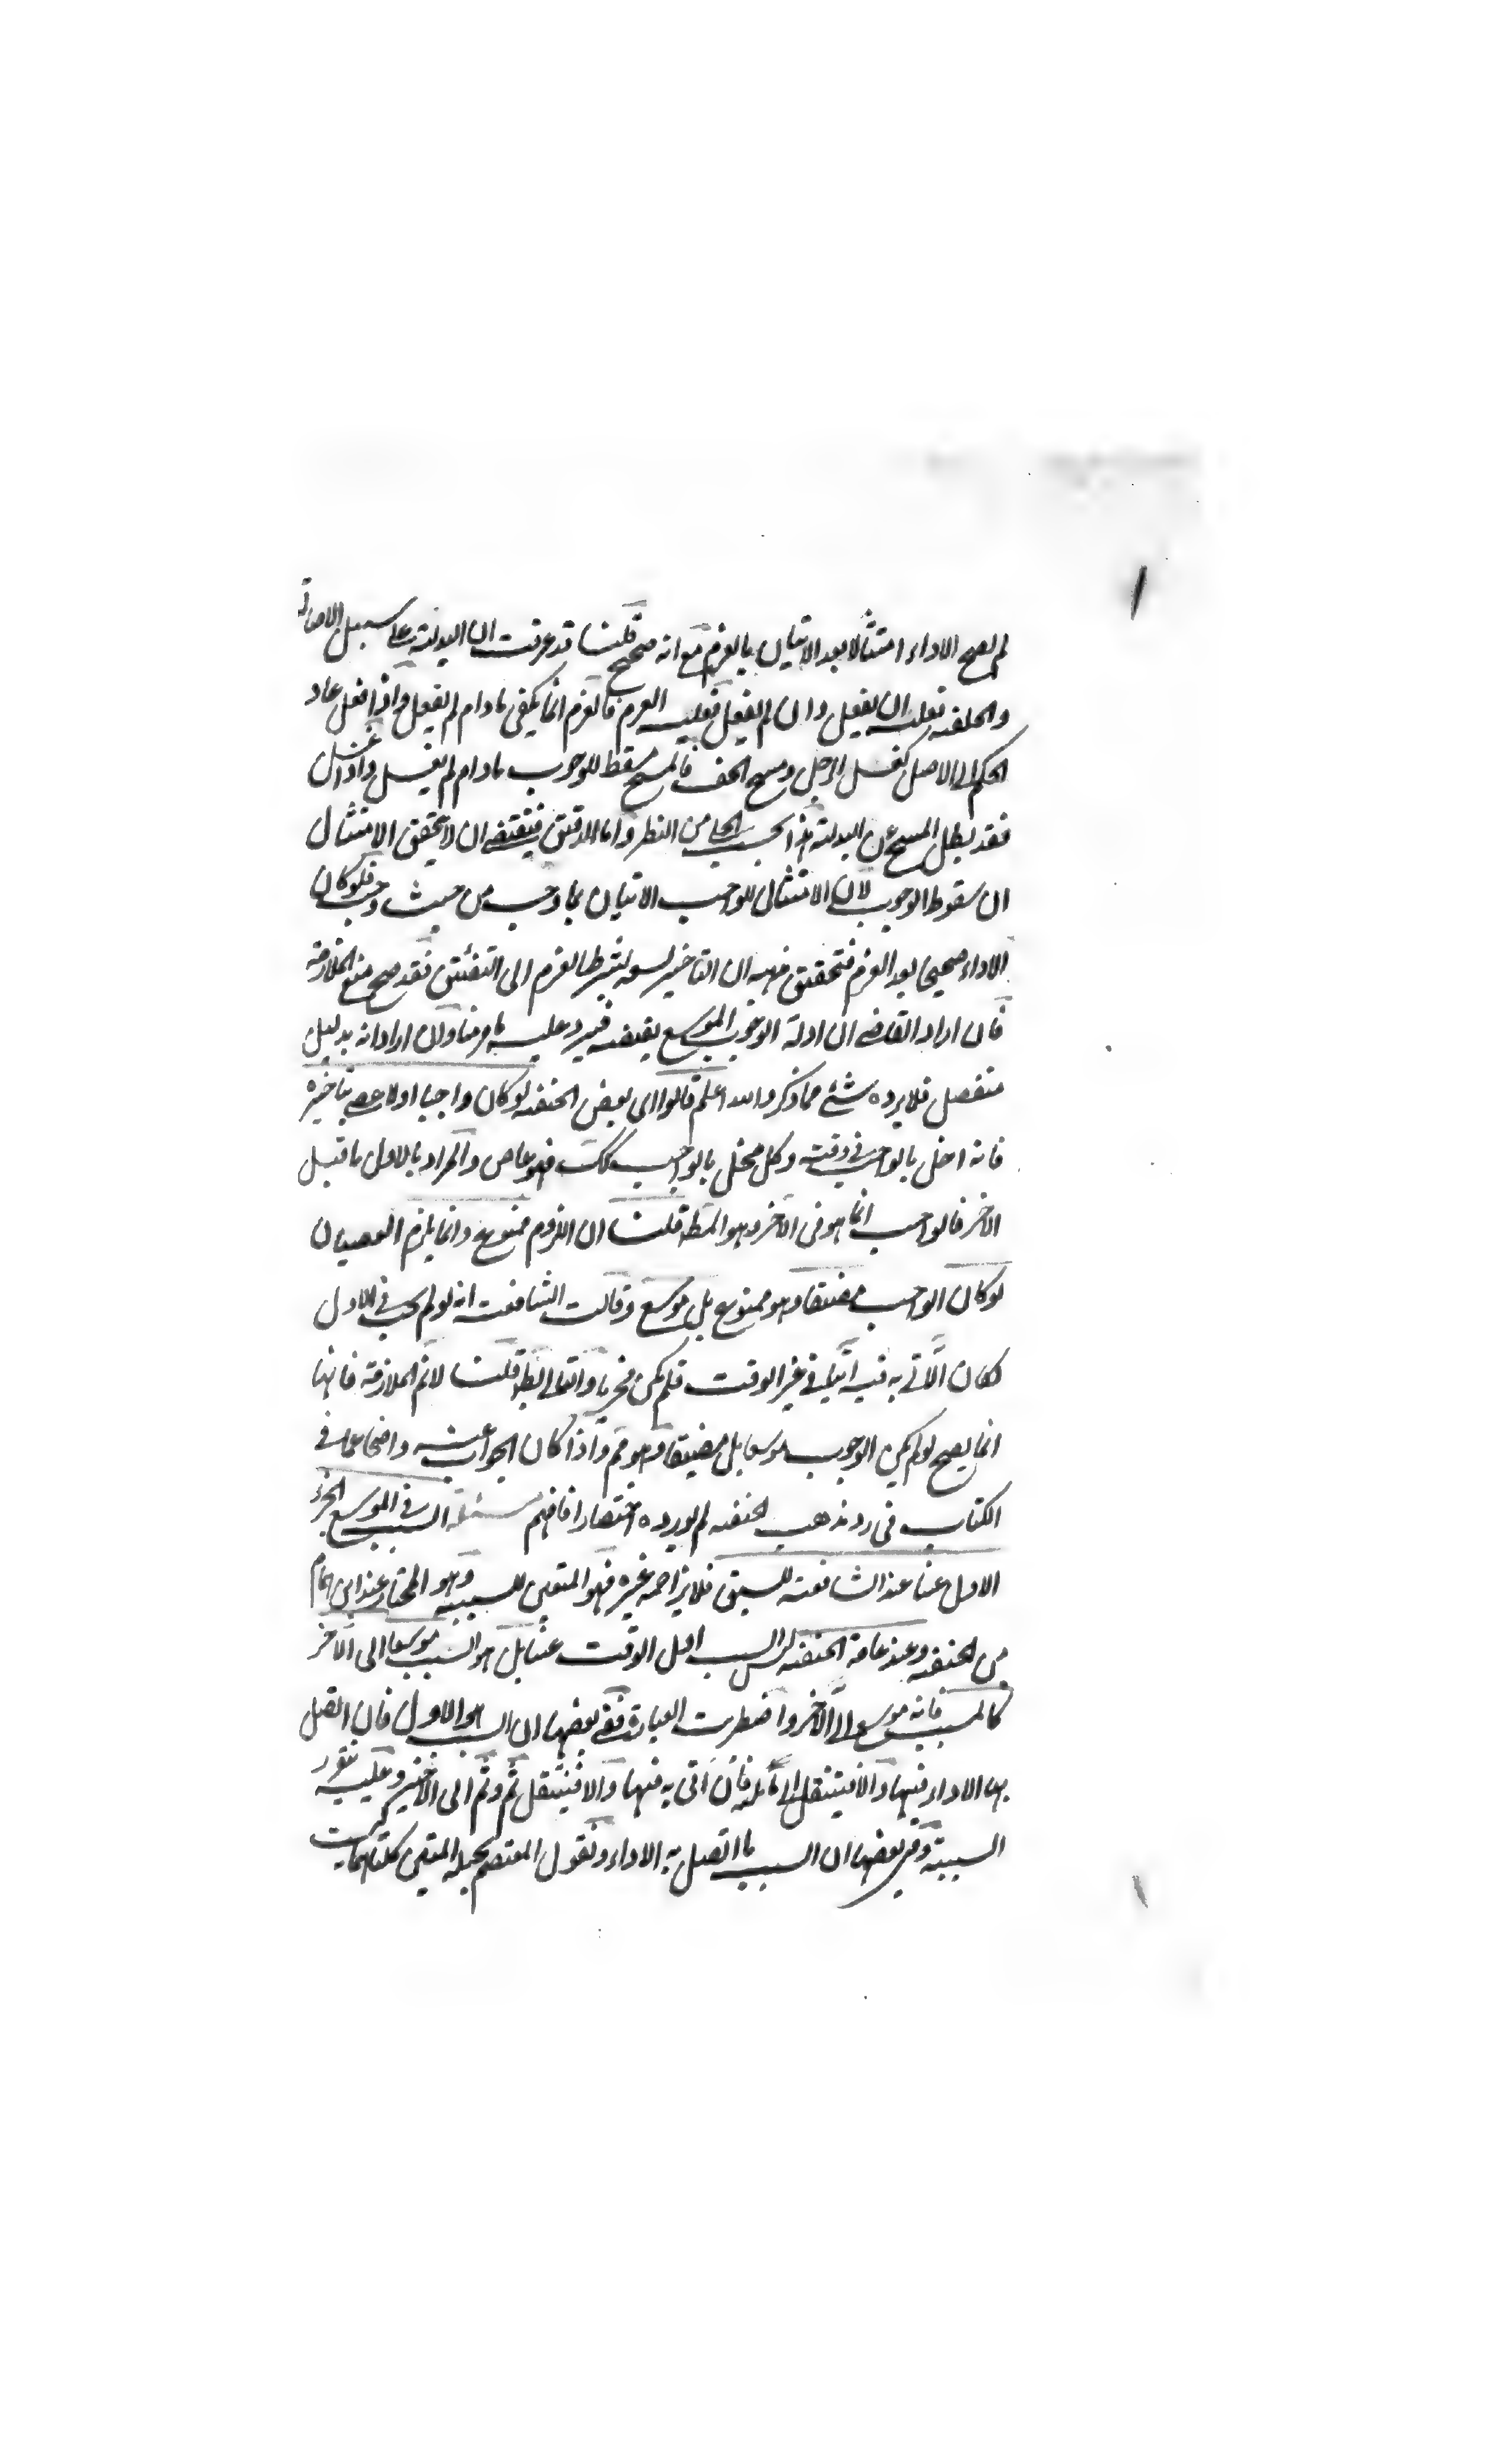 لم يصح الاداء امتثالا بعد الاتيان بالعزم مع انه صحيح قلنا قد عرفت ان البدلية على سبيل الاصالة
والخلفية فعليه ان يفعل وان لم يفعل فعليه العزم فالعزم انما يكفى مادام لم يفعل واذا فعل عاد
الحكم الى الاصل كغسل الرجل ومسح الخف فالمسح مسقط للوجوب مادام لم يغسل واذا غسل
فقد بطل المسح عن البدلية هذا بحسب الجلى من النظر واما الدقيق فيقتضى ان لا يتحقق الامتثال
ان سقوط الوجوب لان الامتثال للواجب الاتيان بما وجب من حيث وجب فلو كان
الاداء صحيحا بعد العزم فتحقق فيه ان التاخير بشرط العزم الى التضيق فقد صح منع الملازمة
فان اراد القاضى ان ادلة الوجوب الموسع يقتضيه فيرد عليه ما مر منا وان اراد انه بدليل
منفصل فلا يرده شئ مما ذكر والله اعلم قالوا اى بعض الحنفية لو كان واجبا اولا عصى بتاخيره
فانه اخل بالواجب فى وقته وكل مخل بالواجب كك فهو عاص والمراد بالاول ما قبل
الآخر فالواجب انما هو فى الآخر وهو المط قلنا ان اللزوم ممنوع وانما يلزم العصيان
لو كان الواجب مضيقا وهو ممنوع بل موسع وقالت الشافعية انه لو لم يجب فى الاول
لكان الآتى به فيه اتيا فى غير الوقت فلم يكن مجزيا والتالى بط قلنا لا نم الملازمة فانها
انما يصح لو لم يكن الوجوب موسعا بل مضيقا وهو مم واذا كان الجواب عنه واضحا عما فى
الكتاب فى رد مذهب الحنفية لم يورده اختصارا فافهم مسئلة السبب فى الموسع الجزء
الاول عينا عند الشافعية للسبق فلا يزاحمه غيره فهو المتعين للسببية وهو المختار عند ابن همام
من الحنفية وعند عامة الحنفية ليس السبب اول الوقت عينا بل هو السبب موسعا الى الآخر
كالمسبب فانه موسع الى الآخر واضطربت العبارة ففى بعضها ان السبب هو الاول فان اتصل
بها الاداء فيها والا فينتقل الى ما يليه فان اتى به فيها والا فينتقل ثم وثم الى الاخير وعليه تقرر
السببية وفى بعضها ان السبب ما اتصل به الاداء ونقول المعتصم بحبله المتين كلتاهما